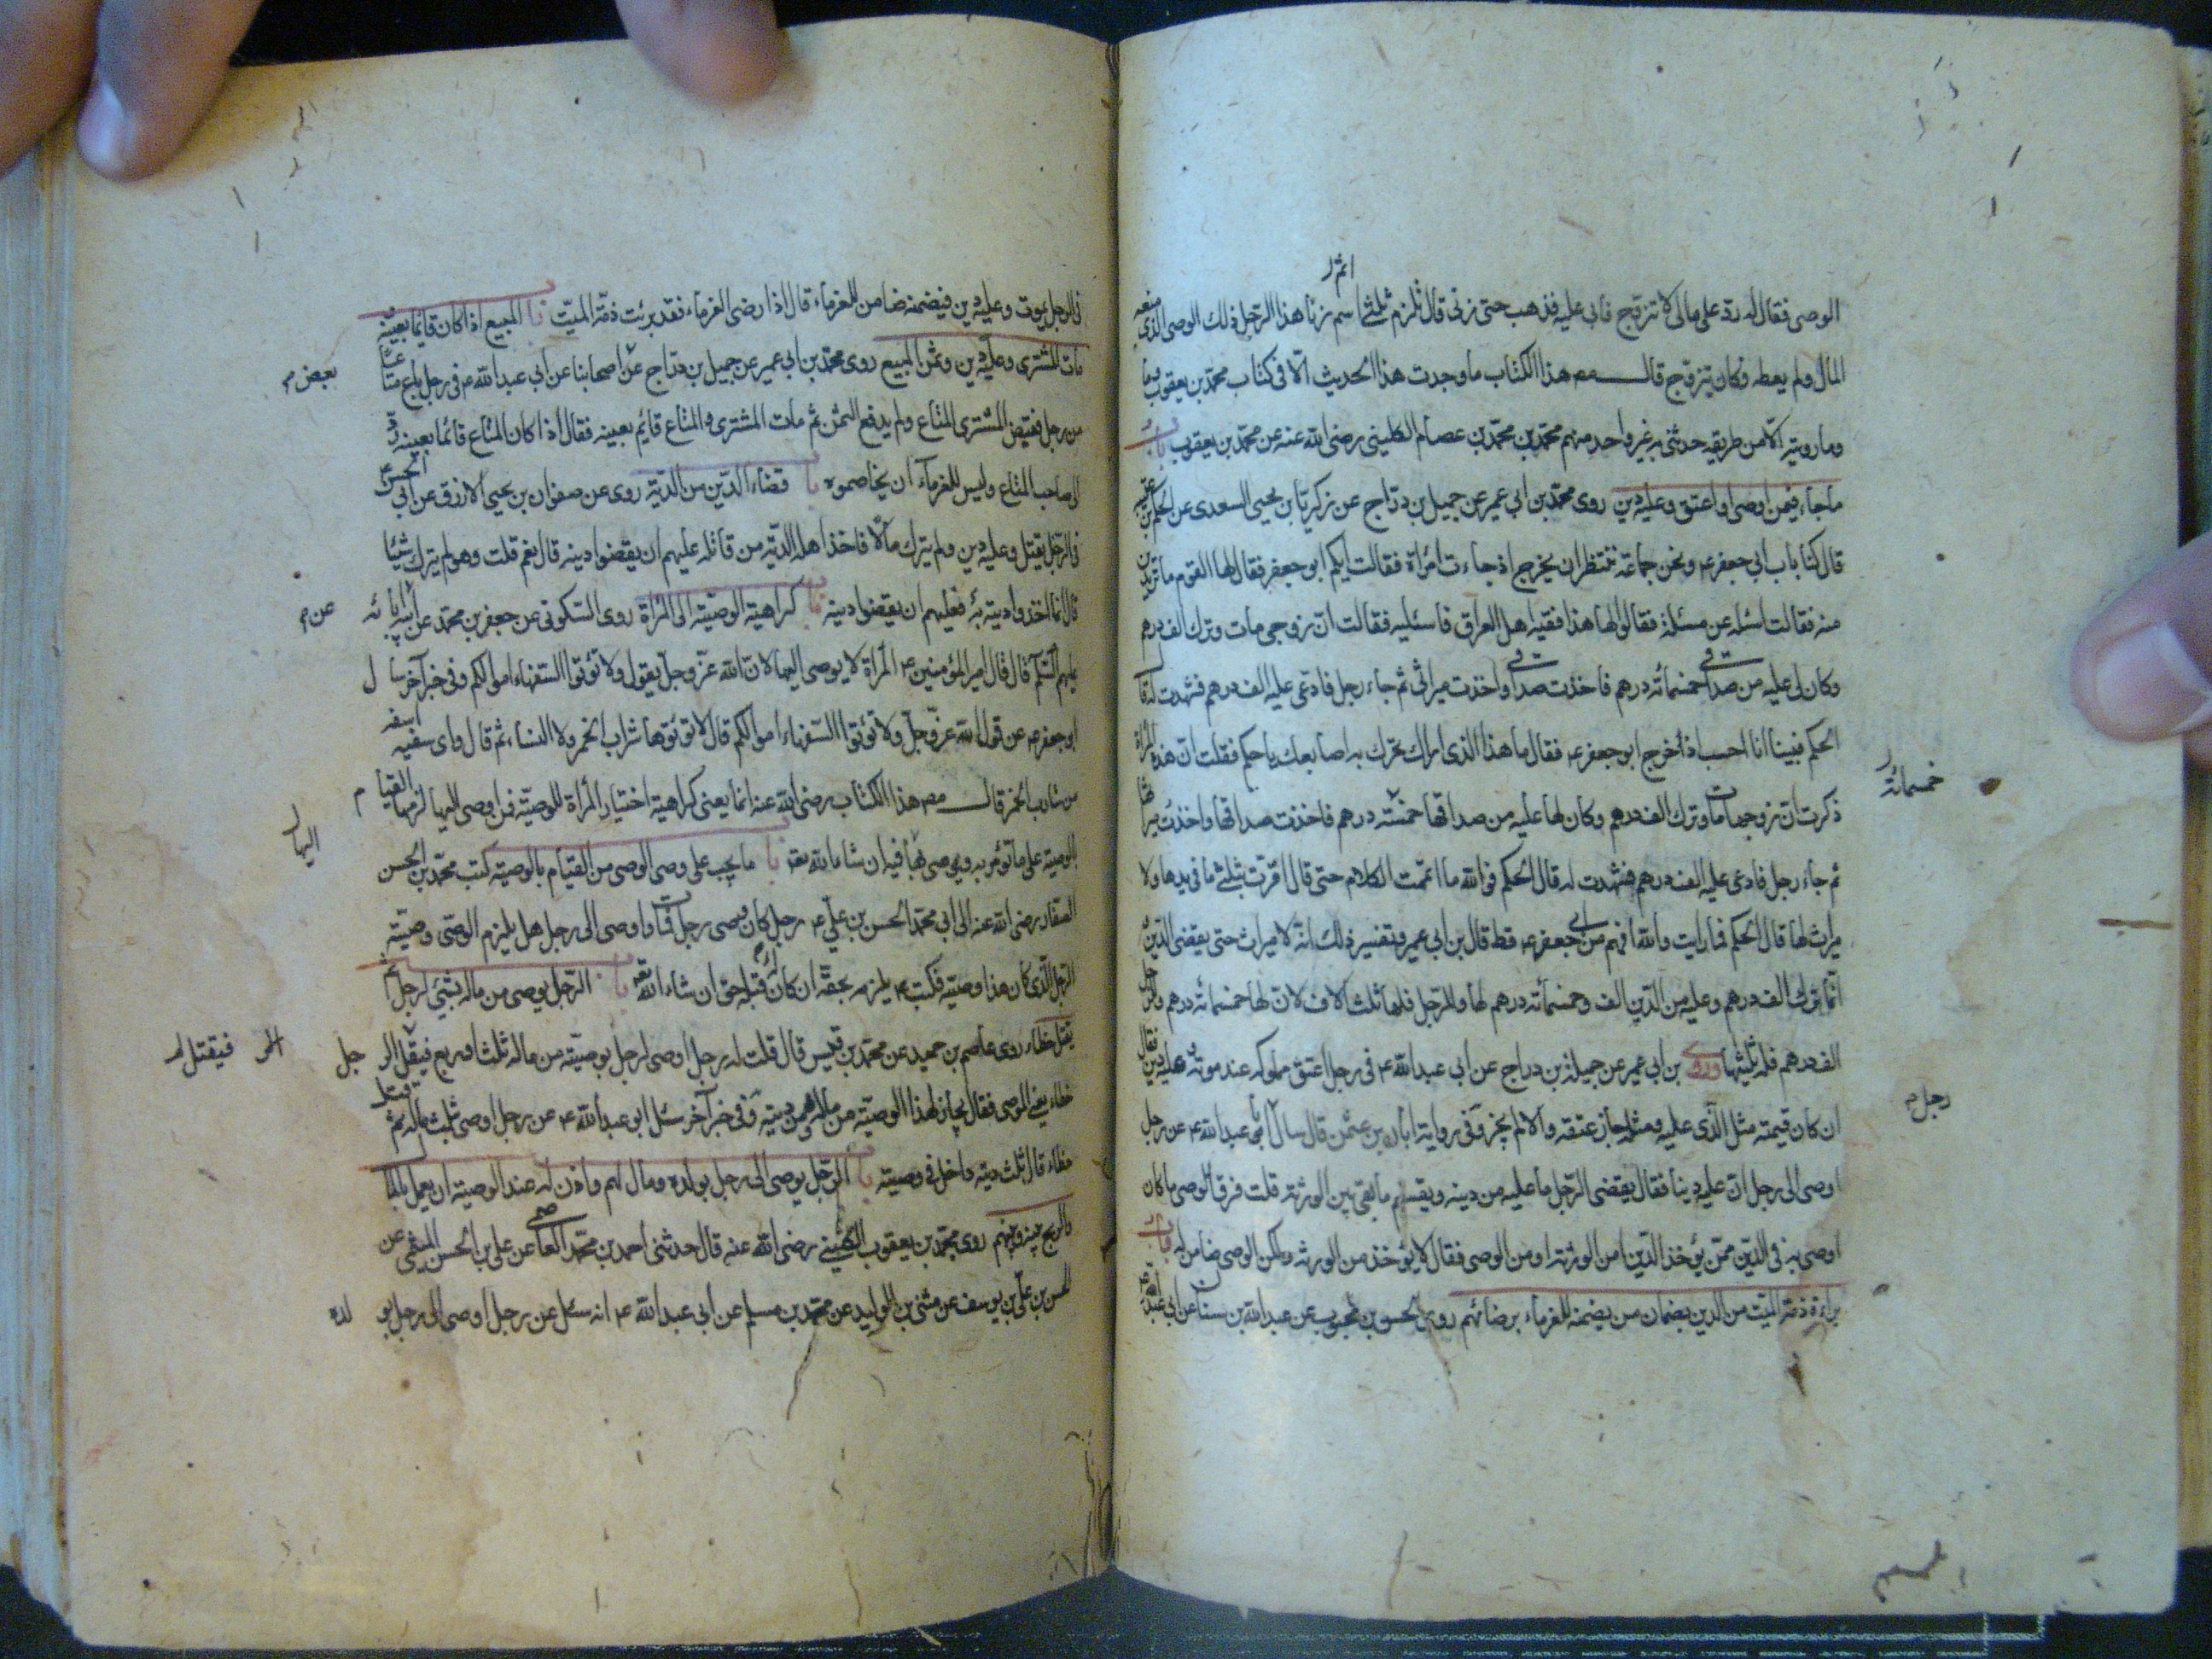 الوصى فقال له رد على مالى لا تزوج فابى عليه فذهب حتى زنى قال تلزم ثلثى اسم زنا هذا الرجل ذلك الوصى الذى منعه
المال ولم يعطه وكان يتزوج قال مص هذا الكتاب ما وجدت هذا الحديث الا فى كتاب محمد بن يعقوب
وما رويته الا من طريقه حدثنى به غير واحد منهم محمد بن محمد بن عصام الكلينى رضى الله عنه عن محمد بن يعقوب باب
ما جاء فيمن اوصى او اعتق وعليه دين روى محمد بن ابى عمير عن جميل بن دراج عن زكريا بن يحيى السعدى عن الحكم بن عتيبه
قال كنا بباب ابى جعفر ع ونحن جماعة ننتظر ان يخرج اذ جاءت امرأة فقالت ايكم ابو جعفر فقال لها القوم ما تريدين
منه فقالت اسئله عن مسئلة فقالوا لها هذا فقيه اهل العراق فاسئليه فقالت ان زوجى مات وترك الف درهم
وكان لى عليه من صداقى خمسمائة درهم فاخذت صداقى واخذت ميراثى ثم جاء رجل فادعى عليه الف درهم فشهدت له قال
الحكم فبينا انا احسب اذ خرج ابو جعفر ع فقال ما هذا الذى اراك تحرك به اصابعك يا حكم فقلت ان هذه المرأة
ذكرت ان زوجها مات وترك الف درهم وكان لها عليه من صداقها خمسمائة درهم فاخذت صداقها واخذت ميراثها
ثم جاء رجل فادعى عليه الف درهم فشهدت له قال الحكم فوالله ما اتممت الكلام حتى قال اقرت بثلثى ما فى يدها ولا
ميراث لها قال الحكم فما رايت والله افهم من ابى جعفر ع قط قال بن ابى عمير وتفسير ذلك انه لا ميراث حتى يقضى الدين
انما ترك الف درهم وعليه من الدين الف وخمسمائة درهم لها وللرجل فلها ثلث الالف لان لها خمسمائة درهم وللرجل
الف درهم فله ثلثيها وروى بن ابى عمير عن جميل بن دراج عن ابى عبد الله ع فى رجل اعتق مملوكه عند موته وعليه دين فقال
ان كان قيمته مثل الذى عليه ومثله جاز عتقه والا لم يجز وفى رواية ابان بن عثمن قال سال ابى عبد الله ع عن رجل
اوصى الى رجل ان عليه دينا فقال يقضى الرجل ما عليه من دينه ويقسم ما بقى بين الورثة قلت فرق الوصى ما كان
اوصى به فى الدين ممن يؤخذ الدين امن الورثة او من الوصى فقال لا يؤخذ من الورثة ولكن الوصى ضامن له باب
براءة ذمة الميت من الدين بضمان من يضمنه للغرماء برضائهم روى الحسن بن محبوب عن عبد الله بن سنان عن ابى عبد الله
خمسمائة
رجل
فى الرجل يموت وعليه دين فيضمنه ضامن للغرماء قال اذا رضى الغرماء فقد برئت ذمة الميت باب المبيع اذا كان قائما بعينه
مات المشترى وعليه دين وثمن المبيع روى محمد بن ابى عمير عن جميل بن دراج عن اصحابنا عن ابى عبد الله ع فى رجل باع متاعا
من رجل فقبض المشترى المتاع ولم يدفع الثمن ثم مات المشترى والمتاع قائم بعينه فقال اذا كان المتاع قائما بعينه رد
الى صاحب المتاع وليس للغرماء ان يخاصموه باب قضاء الدين من الدية روى عن صفوان بن يحيى الازرق عن ابى الحسن ع
فى الرجل يقتل وعليه دين ولم يترك مالا فاخذ اهله الدية من قاتله عليهم ان يقضوا دينه قال نعم قلت وهو لم يترك شيئا
قال انما اخذوا ديته فعليهم ان يقضوا دينه باب كراهية الوصية الى المرأة روى السكونى عن جعفر بن محمد عن ابيه ابائه
عليهم السلام قال قال امير المؤمنين ع المرأة لا يوصى اليها لان الله عز وجل يقول ولا تؤتوا السفهاء اموالكم وفى خبر آخر سال
ابو جعفر ع عن قول الله عز وجل ولا تؤتوا السفهاء اموالكم قال لا تؤتوها شراب الخمر ولا النساء ثم قال واى سفيه اسفه
من شارب الخمر قال مص هذا الكتاب رضى الله عنه انما يعنى كراهية اختيار المرأة للوصية فمن اوصى اليها لزمها القيام
بالوصية على ما تؤمر به ويوصى بها فيه ان شاء الله تعه باب ما يجب على وصى الوصى من القيام بالوصية كتب محمد بن الحسن
الصفار رضى الله عنه الى ابى محمد الحسن بن على ع رجل كان وصى رجل فمات واوصى الى رجل هل يلزم الوصى وصية
الرجل الذى كان هذا وصيه فكتب ع يلزمه بحقه ان كان له قبله حق ان شاء الله تعه باب الرجل يوصى من ماله بشئ لرجل ثم
يقتل خطاء روى عاصم بن حميد عن محمد بن قيس قال قلت له رجل اوصى لرجل بوصية من ماله ثلث او ربع فيقتل الرجل
خطاء يعنى الموصى فقال يجاز لهذا الوصية من ماله ومن ديته وفى خبر آخر سئل ابو عبد الله ع عن رجل اوصى بثلث ماله ثم قتل
خطاء قال ثلث ديته داخل فى وصيته باب الرجل يوصى الى رجل بولده ومال لهم واذن له عند الوصية ان يعمل بالمال
والربح بينه وبينهم روى محمد بن يعقوب الكلينى رضى الله عنه قال حدثنى احمد بن محمد العاصمى عن على بن الحسن الميثمى عن
الحسن بن على بن يوسف عن مثنى بن الوليد عن محمد بن مسلم عن ابى عبد الله ع انه سئل عن رجل اوصى الى رجل بولده
بعض
عن
اليها
فيقتل